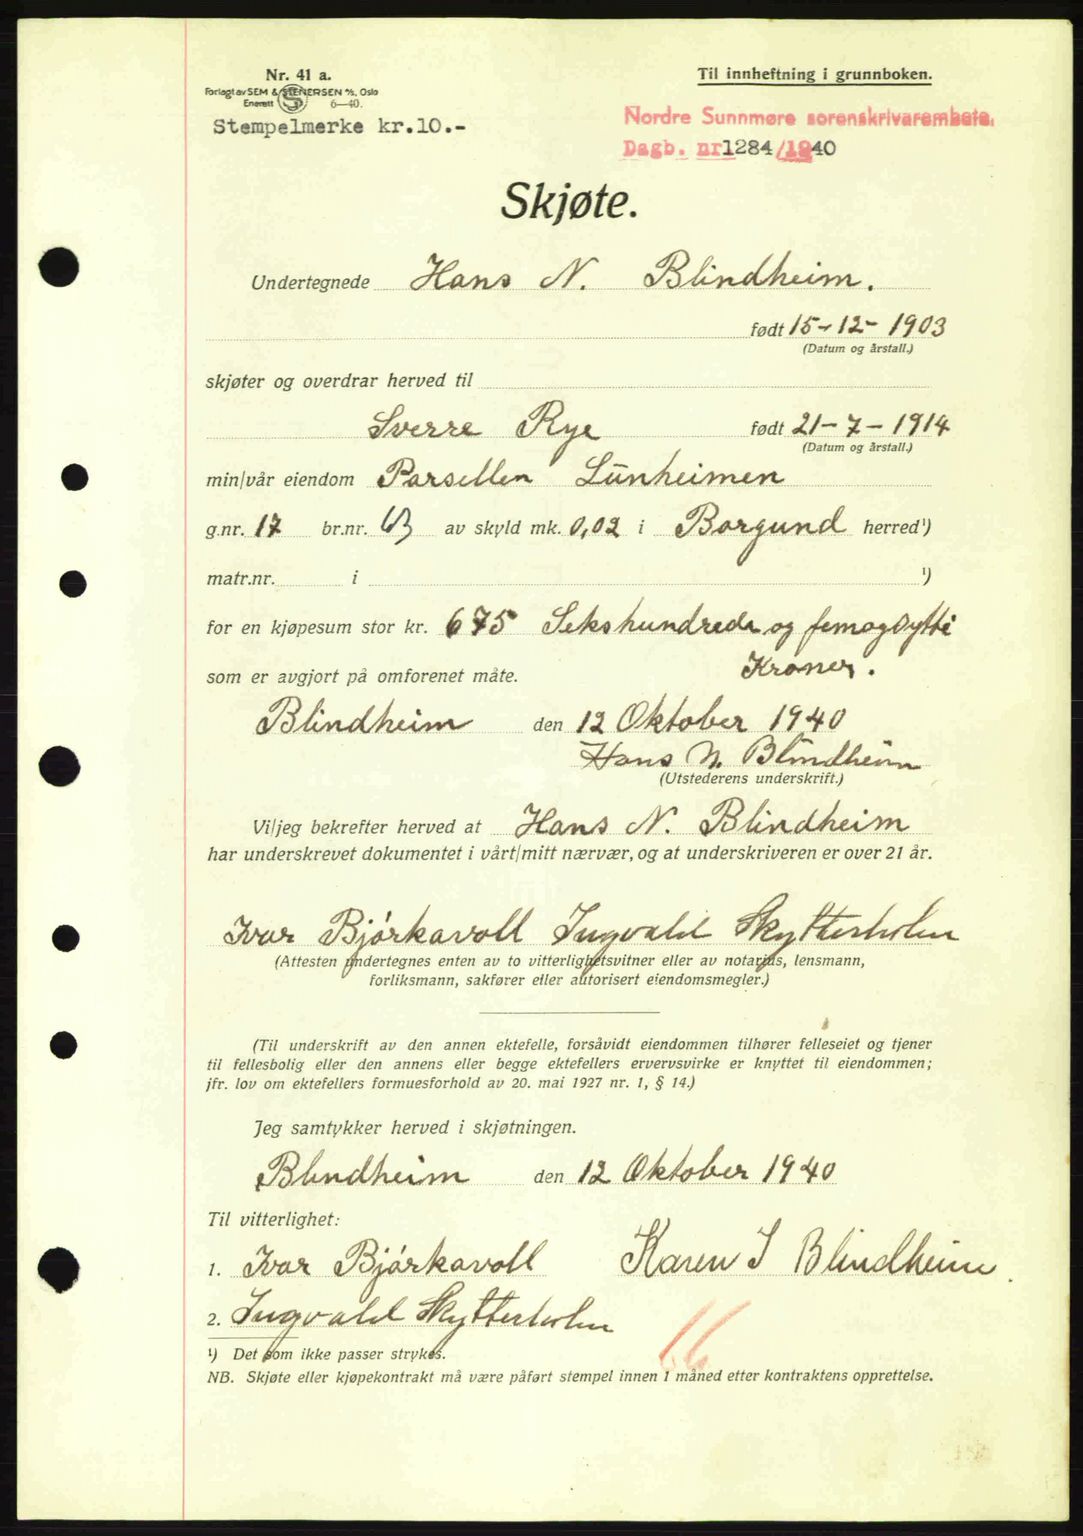 Nr. 41 a.
Forlagt av SEM & STENERSEN A/S, Oslo
Enerett S 6—40.
Stempelmerke kr.10.-
Til innheftning i grunnboken.
Nordre Sunnmøre sorenskrivarembete.
Dagb. nr 1284/1940
Skjøte.
Undertegnede Hans N. Blindheim.
født 15-12-1903
(Datum og årstall.)
skjøter og overdrar herved til
Sverre Rye født 21-7-1914
(Datum og årstall.)
min/vår eiendom Parsellen Lünheimen
g.nr. 17 br.nr. 63 av skyld mk. 0,02 i Borgund herred¹)
matr.nr. i ¹)
for en kjøpesum stor kr. 675 Sekshundrede og femogsytti
Kroner.
som er avgjort på omforenet måte.
Blindheim den 12 Oktober 1940
Hans N. Blindheim
(Utstederens underskrift.)
Vi/jeg bekrefter herved at Hans N. Blindheim
har underskrevet dokumentet i vårt/mitt nærvær, og at underskriveren er over 21 år.
Ivar Bjórkavoll Ingvald Skytterholm
(Attesten undertegnes enten av to vitterlighetsvitner eller av notarius, lensmann,
forliksmann, sakfører eller autorisert eiendomsmegler.)
(Til underskrift av den annen ektefelle, forsåvidt eiendommen tilhører felleseiet og tjener
til fellesbolig eller den annens eller begge ektefellers ervervsvirke er knyttet til eiendommen;
jfr. lov om ektefellers formuesforhold av 20. mai 1927 nr. 1, § 14.)
Jeg samtykker herved i skjøtningen.
Blindheim den 12 Oktober 1940
Til vitterlighet:
1. Ivar Bjórkavoll Karen I Blindheim.
2. Ingvald Skytterholm
16
¹) Det som ikke passer strykes.
NB. Skjøte eller kjøpekontrakt må være påført stempel innen 1 måned etter kontraktens opprettelse.